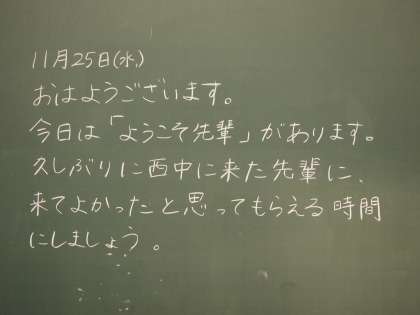 11月25日(水)
おはようございます。
今日は「ようこそ先輩」があります。
久しぶりに西中に来た先輩に、
来てよかったと思ってもらえる時間
にしましょう。